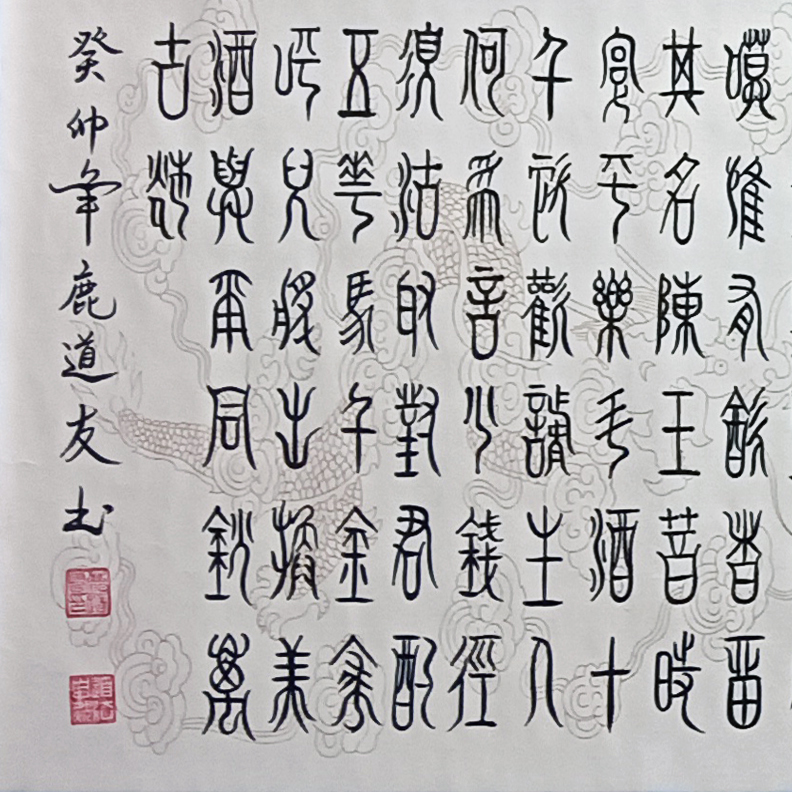 寞惟有飲者留
其名陳王昔時
宴平樂斗酒十
千恣歡謔主人
何為言少錢徑
須沽取對君酌
五花馬千金裘
呼兒將出換美
酒與爾同銷萬
古愁
癸卯年鹿道友书